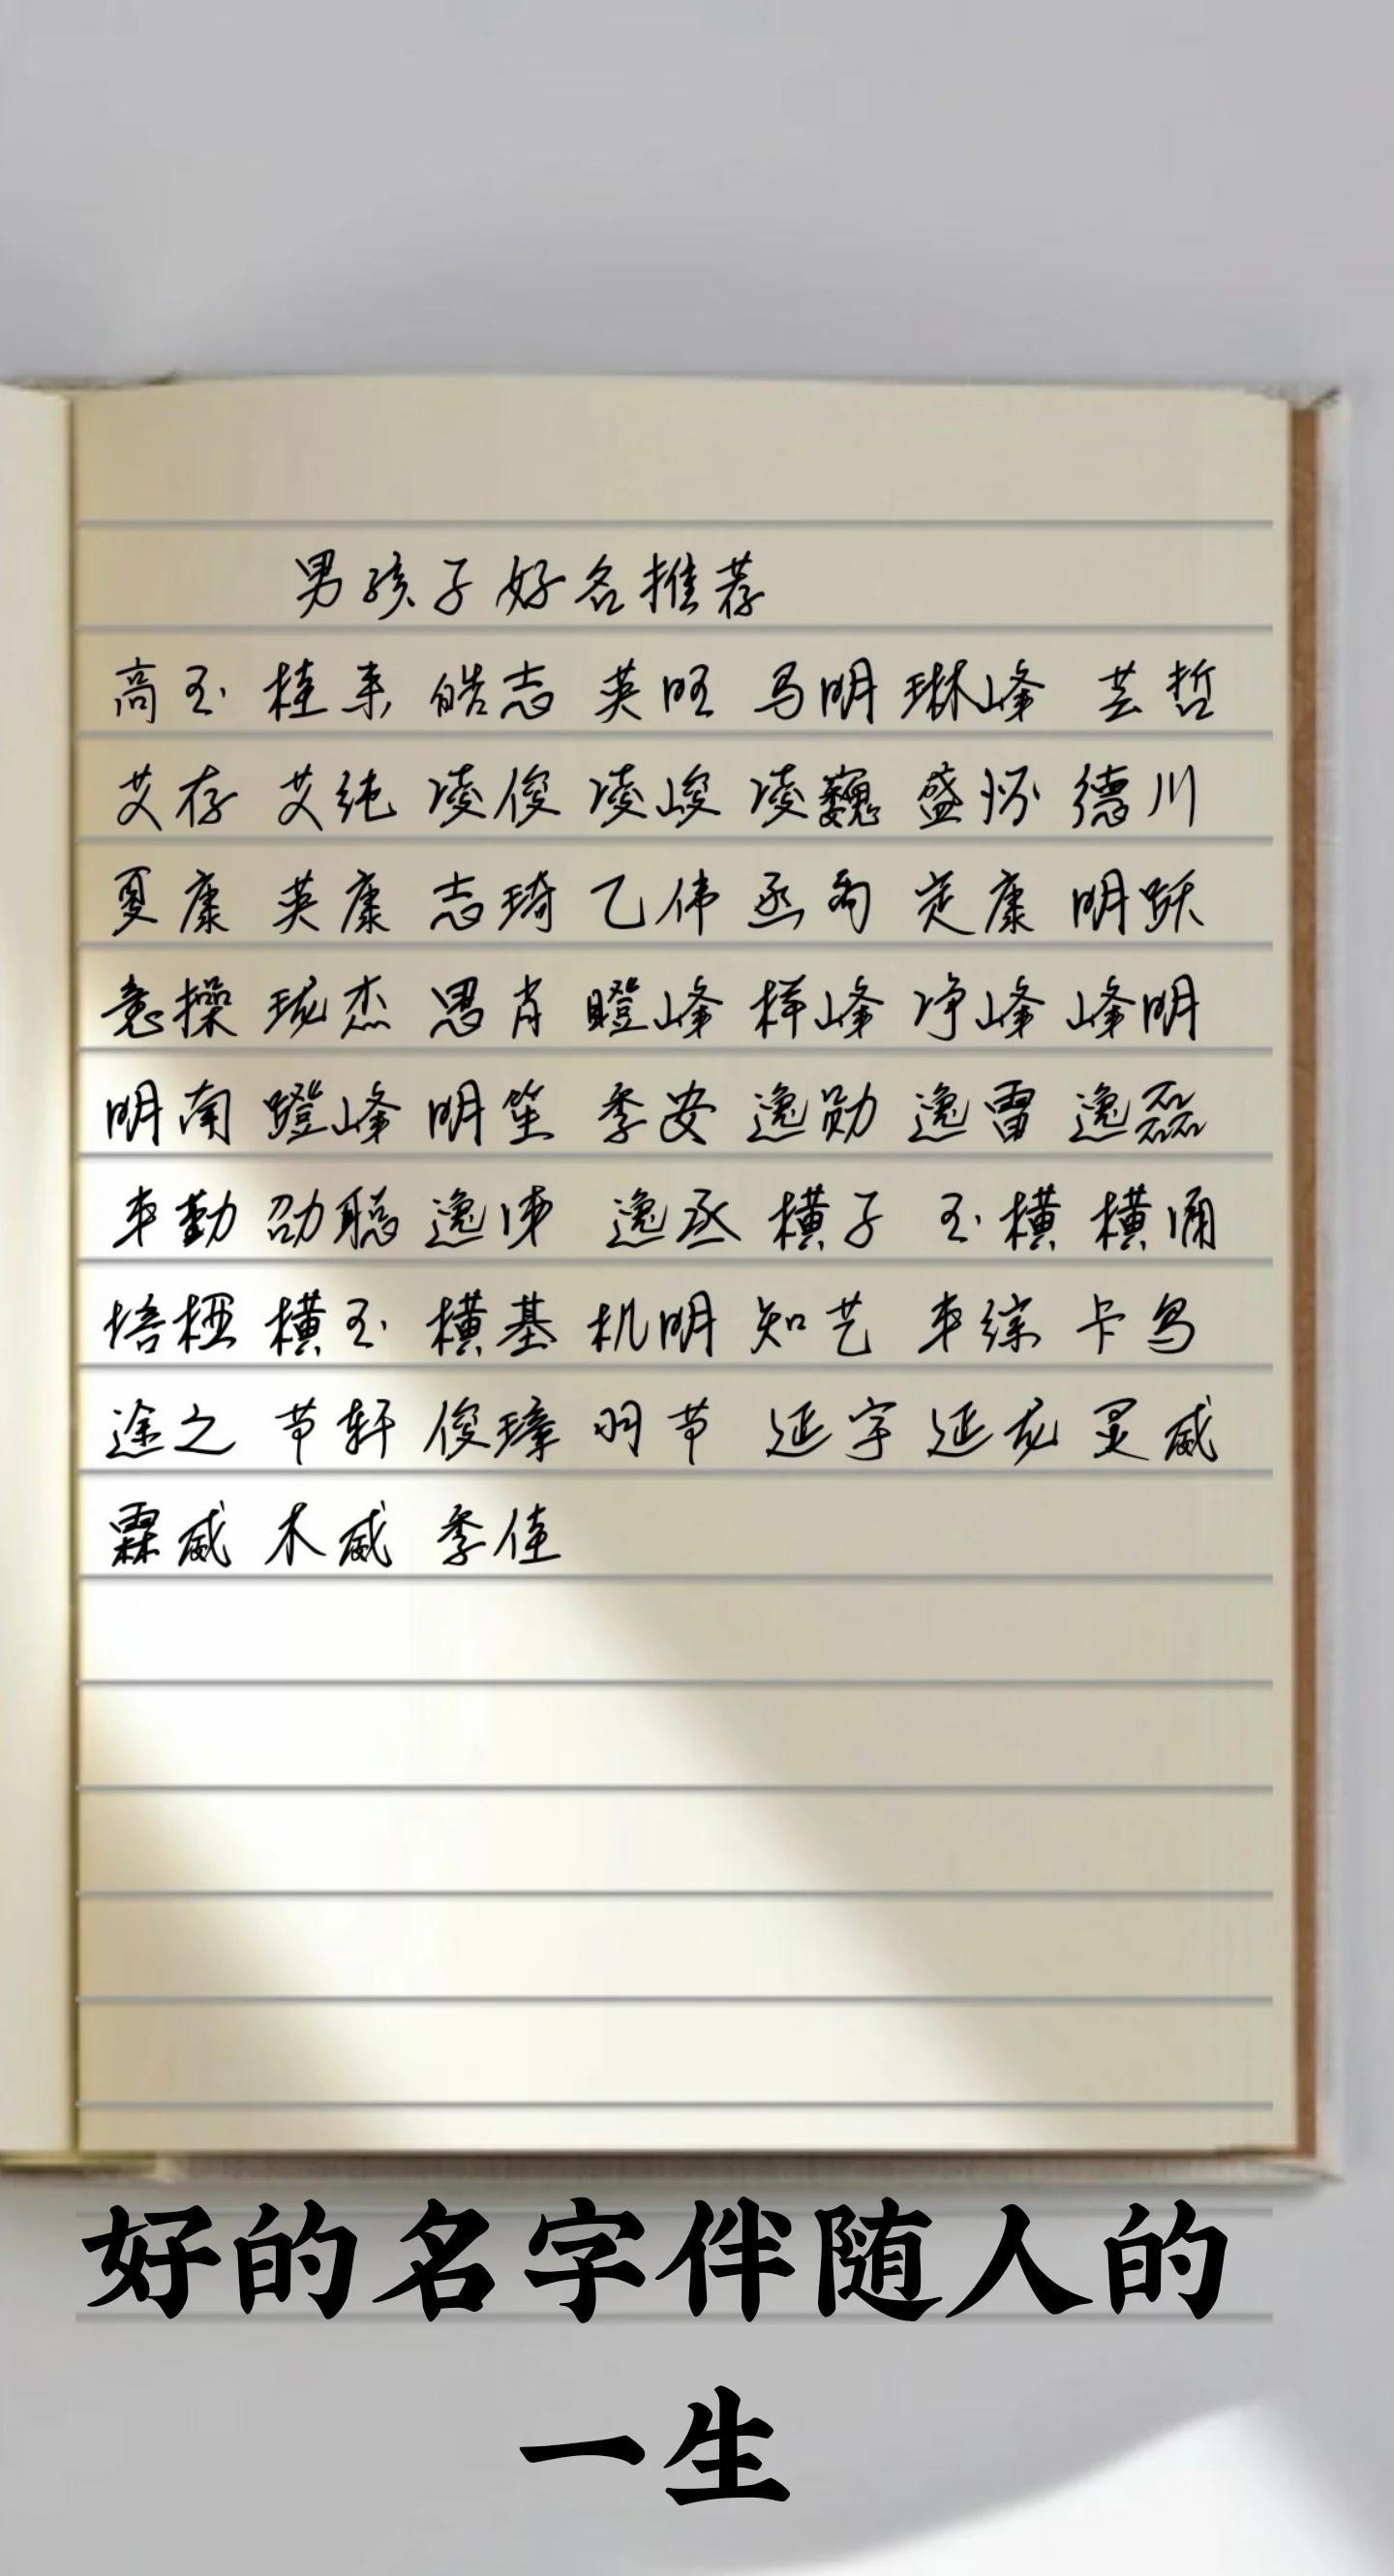 男孩子好名推荐
高玉 桂来 皓志 英旺 马明 琳峰 芸哲
艾存 艾纯 凌俊 凌峻 凌巍 盛怀 德川
夏康 英康 志琦 乙伟 丞 定康 明跃
意操 珑杰 思肖 瞪峰 样峰 净峰 峰明
明南 蹬峰 明笙 季安 逸勋 逸雷 逸磊
车勤 劭聪 逸 逸丞 横子 玉横 横涌
培桠 横玉 横基 机明 知艺 车综 卡鸟
途之 节轩 俊璋 羽节 延宇 延龙 灵威
霖威 木威 季佳
好的名字伴随人的
一生